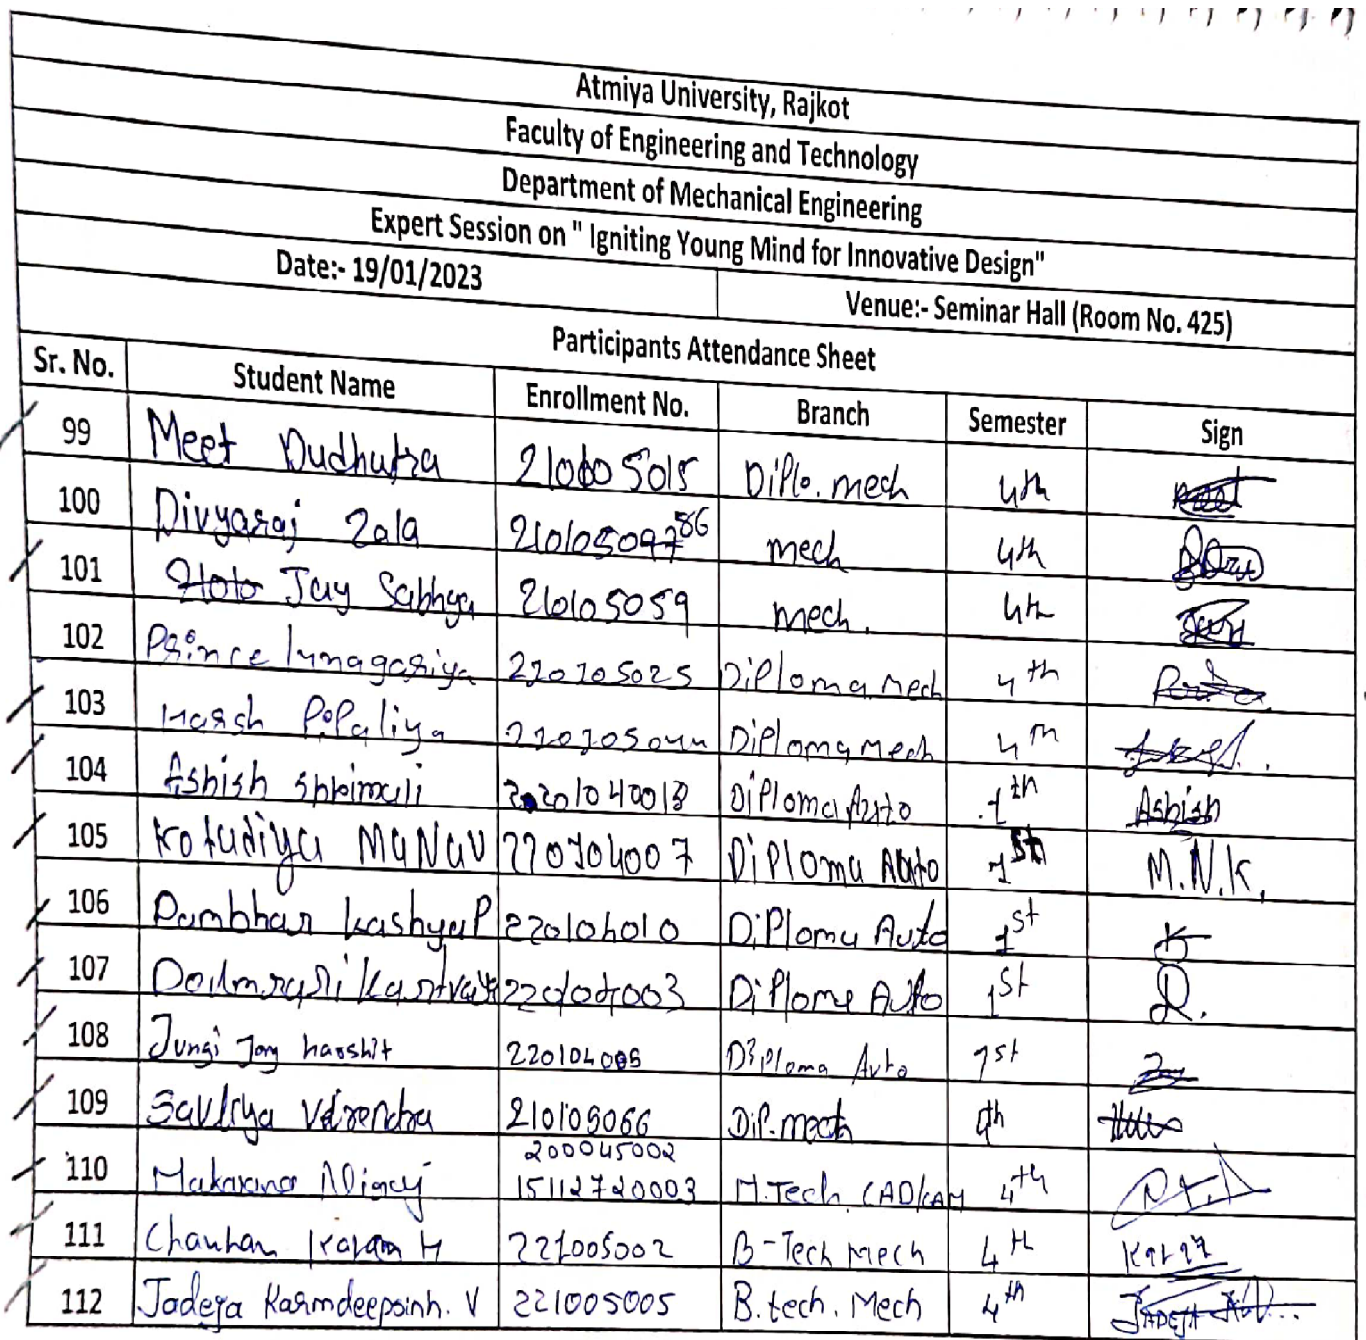 Atmiya University, Rajkot
Faculty of Engineering and Technology
Department of Mechanical Engineering
Expert Session on " Igniting Young Mind for Innovative Design"
Date:- 19/01/2023 Venue:- Seminar Hall (Room No. 425)
Participants Attendance Sheet
Sr. No. Student Name Enrollment No. Branch Semester Sign
99 Meet Dudhutra Diplo. mech 4th
100 Divyaraj Zala mech 4th
101 Jay Sabhya 210105059 mech. 4th
102 Prince lunagariya 220205025 Diploma mech 4th
103 Harsh Popaliya Diploma mech 4th
104 Ashish Shrimali Diploma Auto 1th Ashish
105 Kotadiya MaNav 220104007 Diploma Auto 1st M.N.K.
106 Dambhar kashyaP 220104010 DiPloma Auto 1st K
107 220104003 Diploma Auto 1st D.
108 Jungi Jay harshit 220104005 Diploma Auto 1st
109 Savliya Virendra 210105066 Dip. mech 4th
200045002
110 Makwana Digraj 15112720003 M.Tech CAD/CAM 4th
111 Chauhan Karan H 221005002 B-Tech Mech 4th
112 Jadeja Karmdeepsinh. V 221005005 B.tech. Mech 4th